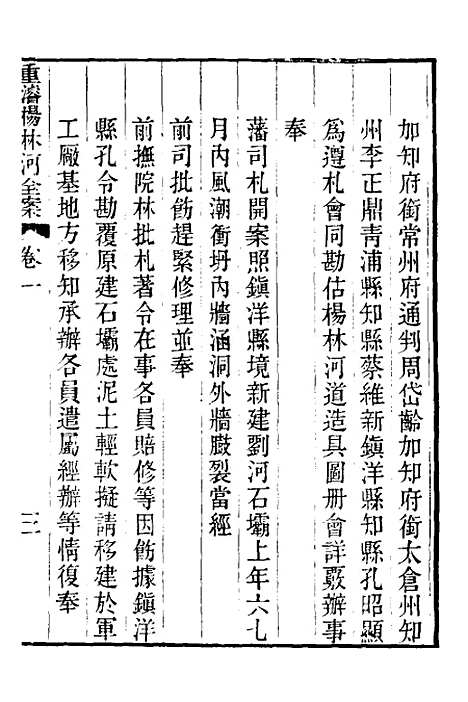 加知府銜常州府通判周岱齡加知府銜太倉州知
州李正鼎青浦縣知縣蔡維新鎮洋縣知縣孔昭顯
爲遵札會同勘估楊林河道造具圖册會詳覈辦事
奉
藩司札開案照鎮洋縣境新建劉河石壩上年六七
月內風潮衝坍內牆涵洞外牆臌裂當經
前司批飭趕緊修理並奉
前撫院林批札著令在事各員賠修等因飭據鎮洋
縣孔令勘覆原建石壩處泥土輕軟擬請移建於軍
工廠基地方移知承辦各員遣屬經辦等情復奉
重濬楊林河全案 卷一 三